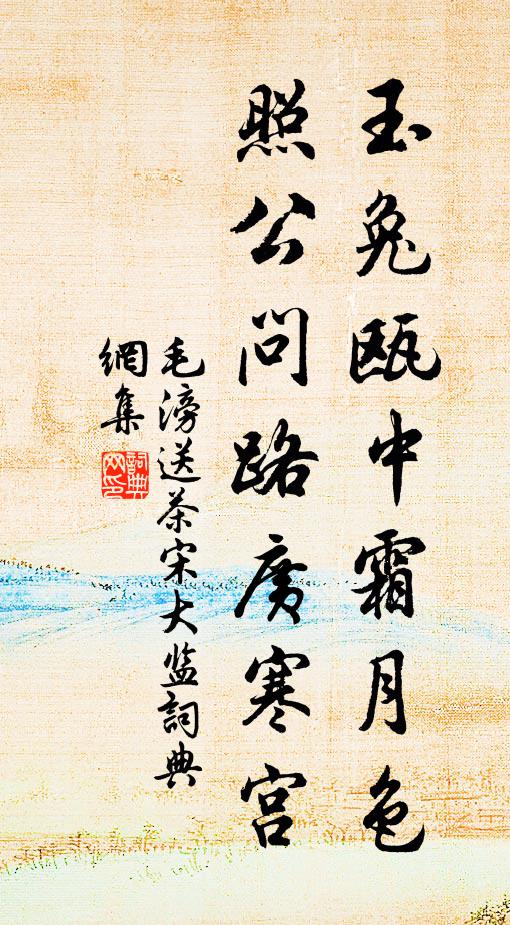 玉兔瓯中霜月色
照公问路廣寒宫
毛滂送茶宋大监詞典
網集
詞典
网印